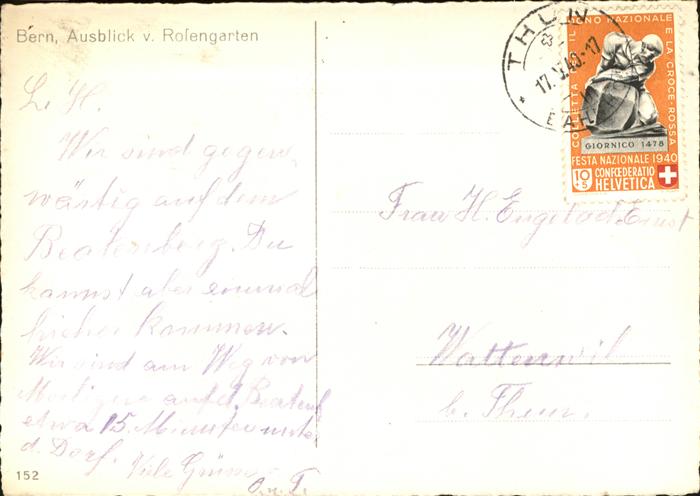 Bern, Ausblick v. Rosengarten
L. H.
Wir sind gegen-
wärtig auf dem
Beatenberg. Du
kannst aber einmal
hieher kommen.
Wir sind am Weg von
auf d. Beatenb
etwa 15 Minuten unter
d. Dorf. Viele Grüsse
152
THUN
17.V.40.-17
COLLETTA IL DONO NAZIONALE E LA CROCE-ROSSA
GIORNICO 1478
FESTA NAZIONALE 1940
10+5 CONFŒDERATIO
HELVETICA
Frau H. Engeloch-Ernst
Wattenwil
b. Thun.